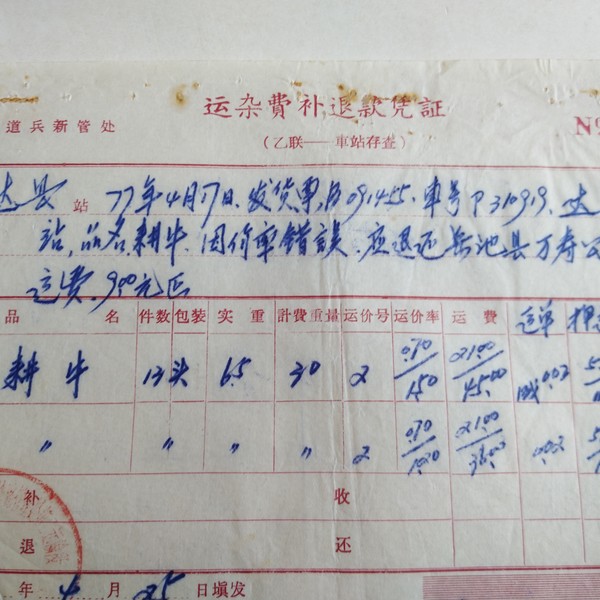 运杂費补退款凭証
道兵新管处
(乙联——車站存查)
№
达县 站 77年4月17日,发货票,B091455.車号P310919.达
站,品名.耕牛.因价率錯誤.应退还岳池县万寿公
运费.9.00元正
品 名 件数 包装 实重 計費重量 运价号 运价率 运費
耕牛 13 头 65 30 2 .070/.150 21.00/45.00
〃 〃 〃 2 .070/.1020 21.00/36.00
补 收
退 还
年 4 月 25 日填发